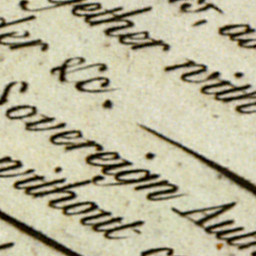 gether with
der &c.
Sovereign Auth
without